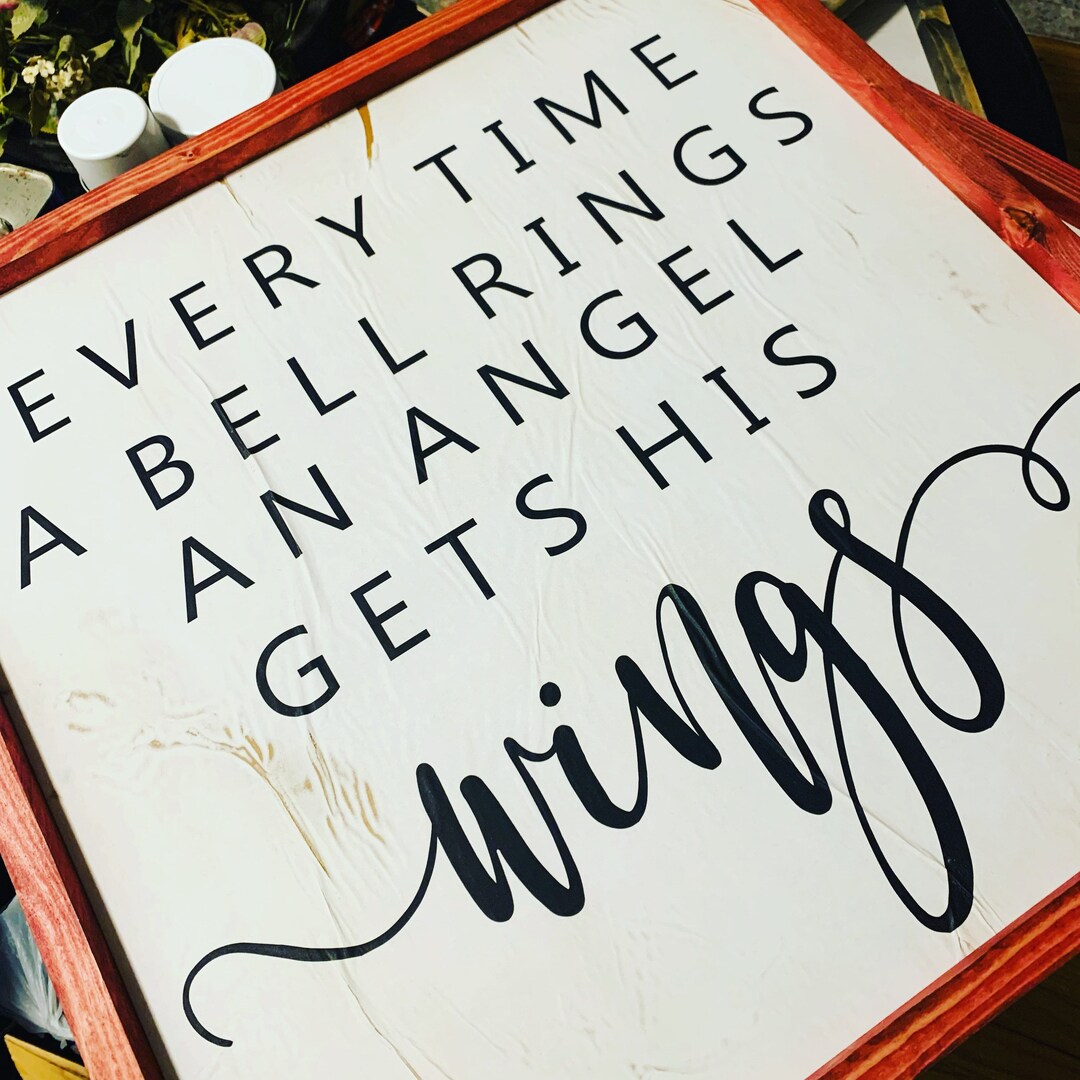 EVERY TIME
A BELL RINGS
AN ANGEL
GETS HIS
wings